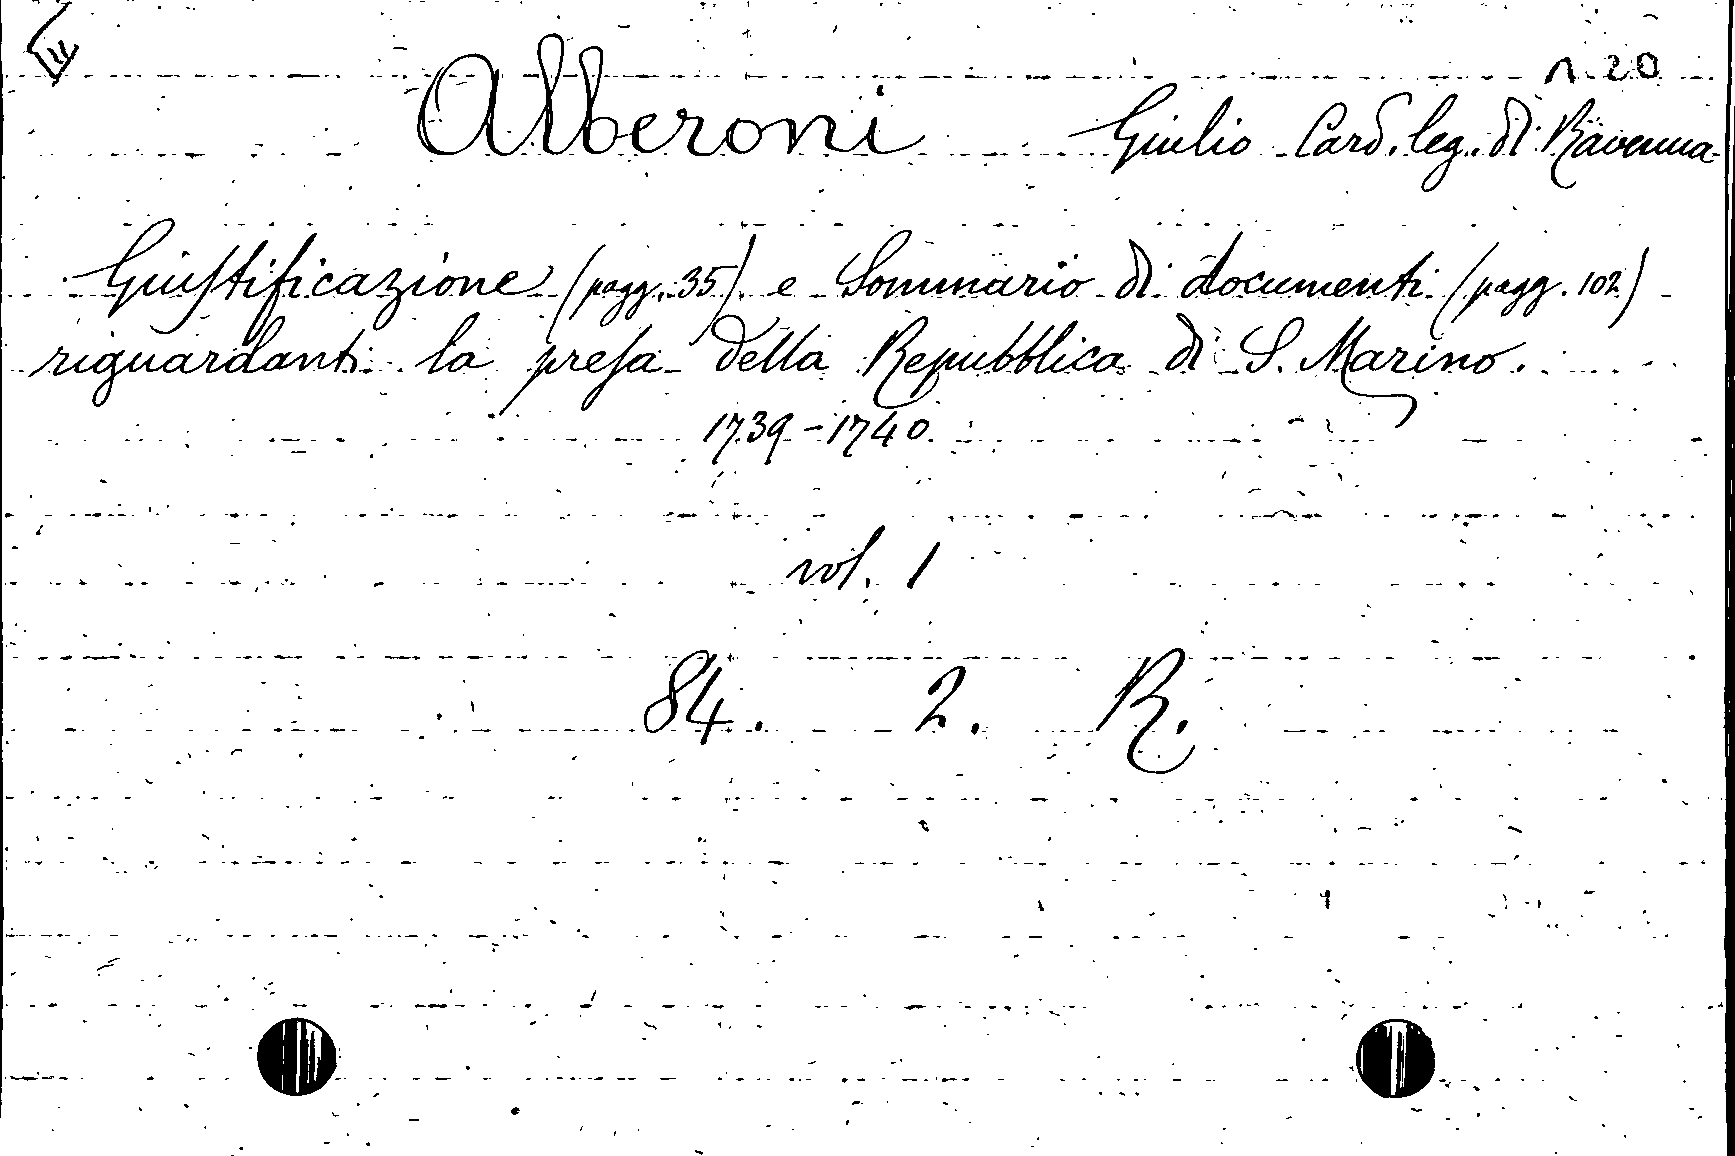 n. 20
Alberoni Giulio Card. leg. di Ravenna
Giustificazione (pagg. 35) e Sommario di documenti (pagg. 102)
riguardanti la presa della Repubblica di S. Marino.
1739-1740.
vol. 1
84. 2. R.